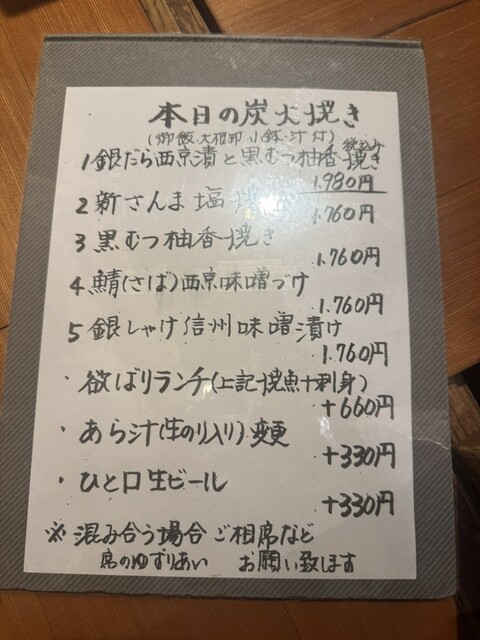 本日の炭火焼き
(御飯.大根卸.小鉢.汁付)
税込み
1 銀だら西京漬と黒むつ柚香焼き
1.980円
2 新さんま塩焼き
1.760円
3 黒むつ柚香焼き
1.760円
4 鯖(さば)西京味噌づけ
1.760円
5 銀しゃけ信州味噌漬け
1.760円
・欲ばりランチ(上記焼魚+刺身)
+660円
・あら汁(生のり入り)変更
+330円
・ひと口生ビール
+330円
※混み合う場合ご相席など
席のゆずりあい お願い致します